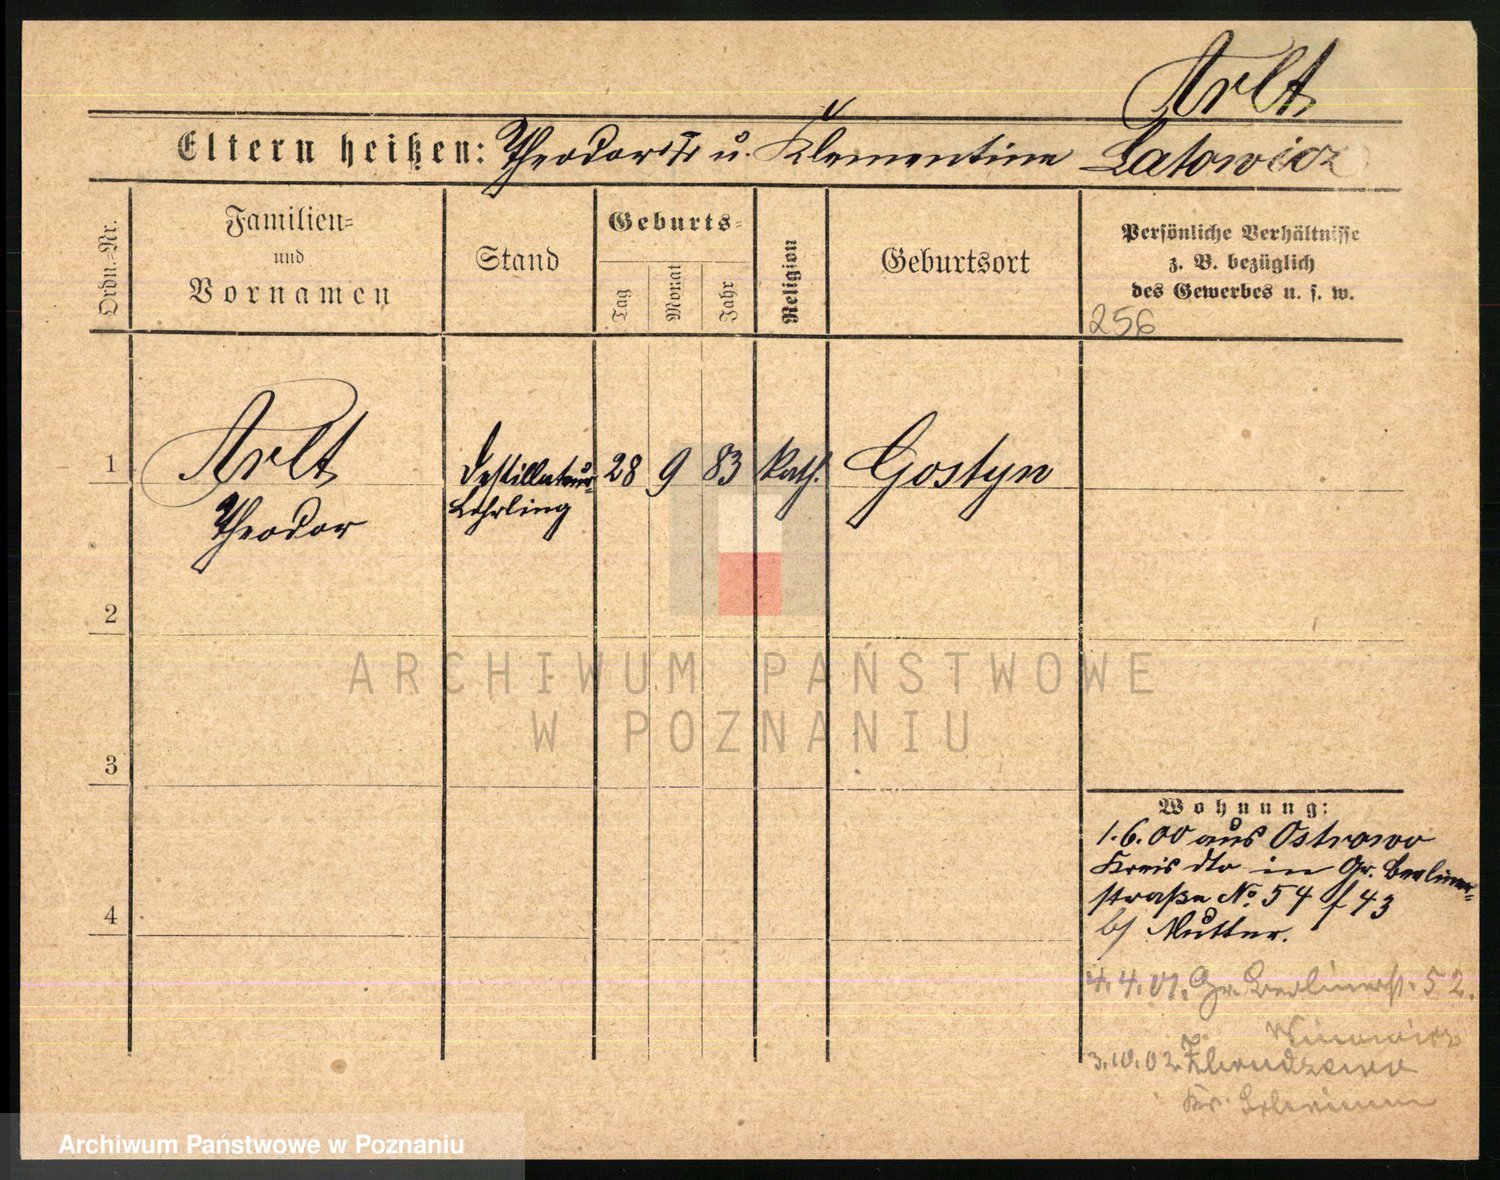 Arlt
Eltern heißen: Theodor † u. Klementine Latowicz
Ordn.-Nr.
Familien-
und
Vornamen
Stand
Geburts-
Tag
Monat
Jahr
Religion
Geburtsort
Persönliche Verhältnisse
z. B. bezüglich
des Gewerbes u. s. w.
256
1
Arlt
Theodor
Destillateur-
Lehrling
28 9 83 kath. Gostyn
2
3
4
Wohnung:
1.6.00 aus Ostrowo
Kreis dto in Gr. Berliner-
straße No 54 f 43
b/ Mutter.
4.4.01. Gr. Berlinerst. 52.
3.10.02.
Kr. Schrimm
ARCHIWUM PAŃSTWOWE
W POZNANIU
Archiwum Państwowe w Poznaniu